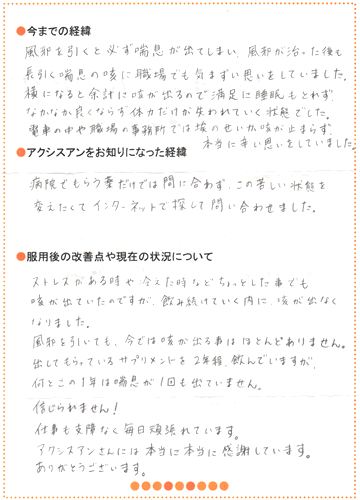 今までの経緯
風邪を引くと必ず喘息が出てしまい、風邪が治った後も
長引く喘息の咳に職場でも気まずい思いをしていました。
横になると余計に咳が出るので満足に睡眠もとれず、
なかなか良くならず体力だけが失われていく状態でした。
電車の中や職場の事務所では埃のせいか咳が止まらず、
本当に辛い思いをしていました。
アクシスアンをお知りになった経緯
病院でもらう薬だけでは間に合わず、この苦しい状態を
変えたくてインターネットで探して問い合わせました。
服用後の改善点や現在の状況について
ストレスがある時や冷えた時などちょっとした事でも
咳が出ていたのですが、飲み続けていく内に、咳が出なく
なりました。
風邪を引いても、今では咳が出る事はほとんどありません。
出してもらっているサプリメントを2年程、飲んでいますが、
何とこの1年は喘息が1回も出ていません。
信じられません!
仕事も支障なく毎日頑張れています。
アクシスアンさんには本当に本当に感謝しています。
ありがとうございます。